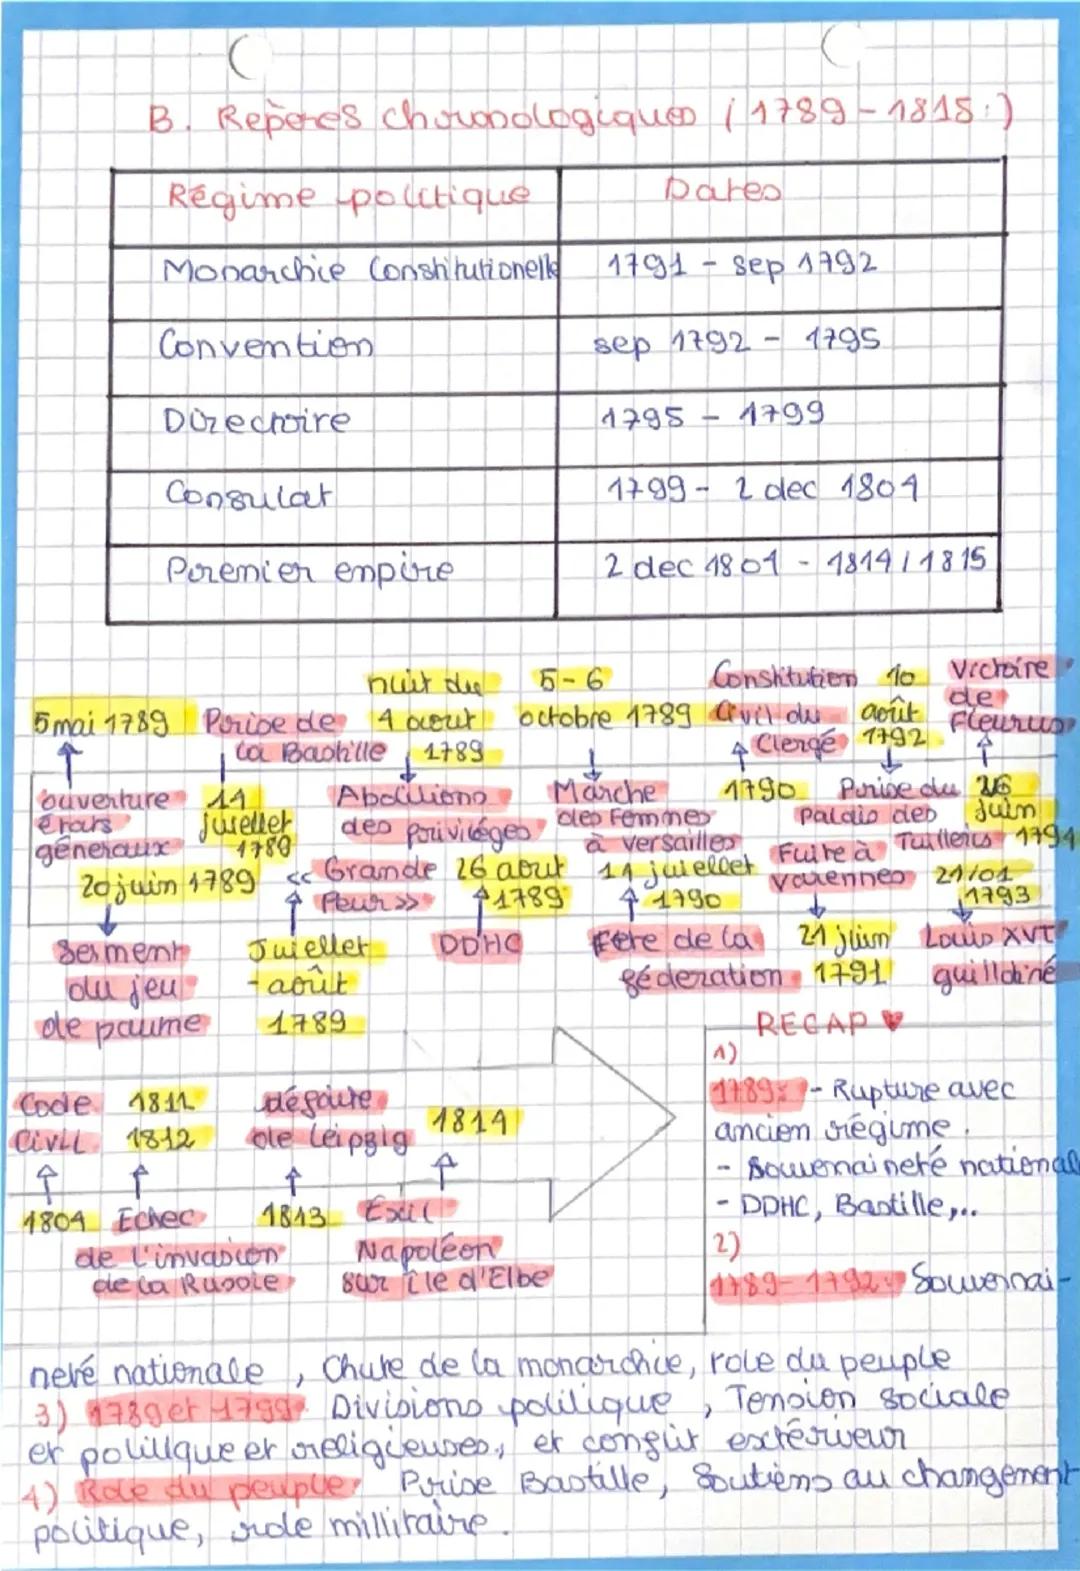 B. Repères chronologiques (1789-1815.)
Régime politique Dates
Monarchie Constitutionelle 1791 - sep 1792
Convention sep 1792 - 1795
Directoire 1795 - 1799
Consulat 1799 - 2 dec 1804
Premier empire 2 dec 1804 - 1814/1815
nuit du 5-6 Constitution 10 Victoire
5 mai 1789 Prise de 4 aout octobre 1789 Civil du août de
la Bastille 1789 Clergé 1792 Fleurus
ouverture 14 Abolitions Marche 1790 Prise du 26
états juiellet des privilèges des femmes palais des juin
généraux 1789 à versailles Fuite à Tuilleris 1794
20 juin 1789 << Grande 26 aout 14 juiellet varennes 21/01
Peur >> 1789 1790 1793
Serment Juiellet DDHC Fête de la 21 juin Louis XVI
du jeu - août féderation 1791 guillotiné
de paume 1789
RECAP ♥
1)
Code 1811 défaite 1814 1789: - Rupture avec
Civil 1812 de leipzig ancien régime.
- Souverraineté national
1804 Echec 1813 Exil - DDHC, Bastille,...
de l'invasion Napoléon 2)
de la Russie sur île d'Elbe 1789-1792: Souverrai-
neté nationale, Chute de la monarchie, role du peuple
3) 1789 et 1799: Divisions politique, Tension sociale
et politique et religieuses, et conflit extérieur
4) Role du peuple: Prise Bastille, Soutiens au changement
politique, role millitaire.